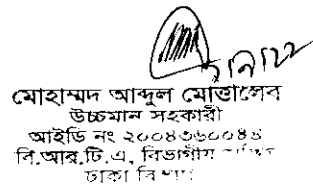 মোহাম্মদ আব্দুল মোত্তালেব
উচ্চমান সহকারী
আইডি নং ২০০৪৩৬০০৪৪
বি.আর.টি.এ, বিভাগীয়
ঢাকা